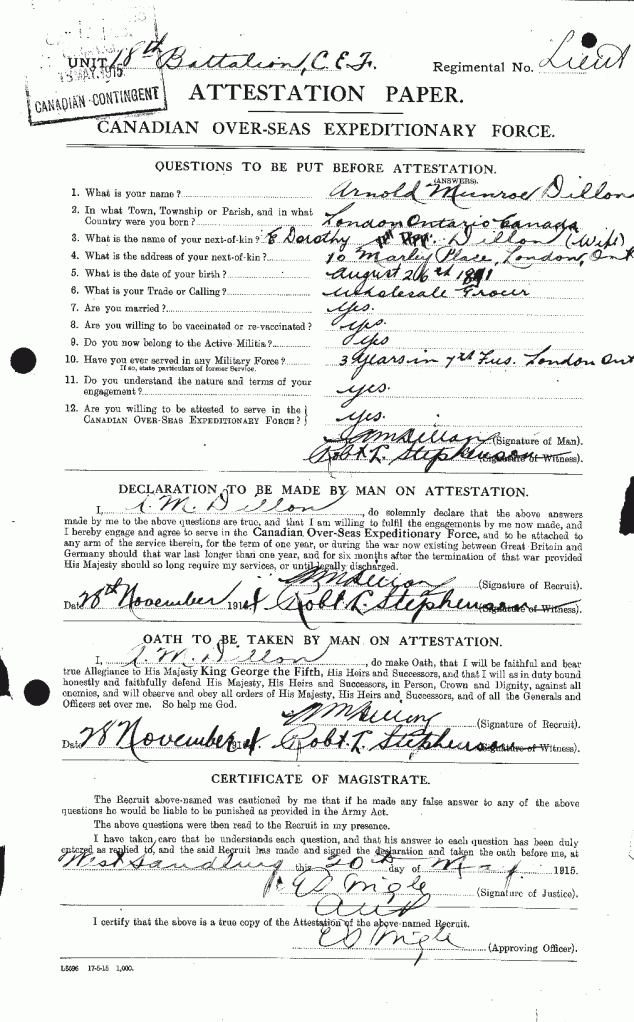 UNIT 18th Battalion, C.E.F. Regimental No. Lieut
MAY. 1915
CANADIAN CONTINGENT
ATTESTATION PAPER.
CANADIAN OVER-SEAS EXPEDITIONARY FORCE.
QUESTIONS TO BE PUT BEFORE ATTESTATION.
(ANSWERS).
1. What is your name? Arnold Munroe Dillon
2. In what Town, Township or Parish, and in what
Country were you born? London Ontario Canada
3. What is the name of your next-of-kin? Dorothy Dillon (Wife)
4. What is the address of your next-of-kin? 10 Marley Place, London, Ont
5. What is the date of your birth? August 26th 1891
6. What is your Trade or Calling? Wholesale Grocer
7. Are you married? Yes.
8. Are you willing to be vaccinated or re-vaccinated? Yes.
9. Do you now belong to the Active Militia? Yes
10. Have you ever served in any Military Force? 3 Years in 7th Fus. London Ont
If so, state particulars of former Service.
11. Do you understand the nature and terms of your
engagement? Yes.
12. Are you willing to be attested to serve in the
CANADIAN OVER-SEAS EXPEDITIONARY FORCE? Yes.
AM Dillon (Signature of Man).
Robt. L. Stephenson (Signature of Witness).
DECLARATION TO BE MADE BY MAN ON ATTESTATION.
I, A. M. Dillon, do solemnly declare that the above answers
made by me to the above questions are true, and that I am willing to fulfil the engagements by me now made, and
I hereby engage and agree to serve in the Canadian Over-Seas Expeditionary Force, and to be attached to
any arm of the service therein, for the term of one year, or during the war now existing between Great Britain and
Germany should that war last longer than one year, and for six months after the termination of that war provided
His Majesty should so long require my services, or until legally discharged.
AM Dillon (Signature of Recruit).
Date 28th November 1914 Robt. L. Stephenson (Signature of Witness).
OATH TO BE TAKEN BY MAN ON ATTESTATION.
I, A. M. Dillon, do make Oath, that I will be faithful and bear
true Allegiance to His Majesty King George the Fifth, His Heirs and Successors, and that I will as in duty bound
honestly and faithfully defend His Majesty, His Heirs and Successors, in Person, Crown and Dignity, against all
enemies, and will observe and obey all orders of His Majesty, His Heirs and Successors, and of all the Generals and
Officers set over me. So help me God.
AM Dillon (Signature of Recruit).
Date 28 November 1914 Robt. L. Stephenson (Signature of Witness).
CERTIFICATE OF MAGISTRATE.
The Recruit above-named was cautioned by me that if he made any false answer to any of the above
questions he would be liable to be punished as provided in the Army Act.
The above questions were then read to the Recruit in my presence.
I have taken care that he understands each question, and that his answer to each question has been duly
entered as replied to, and the said Recruit has made and signed the declaration and taken the oath before me, at
West Sandling this 20th day of May 1915.
(Signature of Justice).
I certify that the above is a true copy of the Attestation of the above-named Recruit.
(Approving Officer).
L5696 17-5-15 1,000.